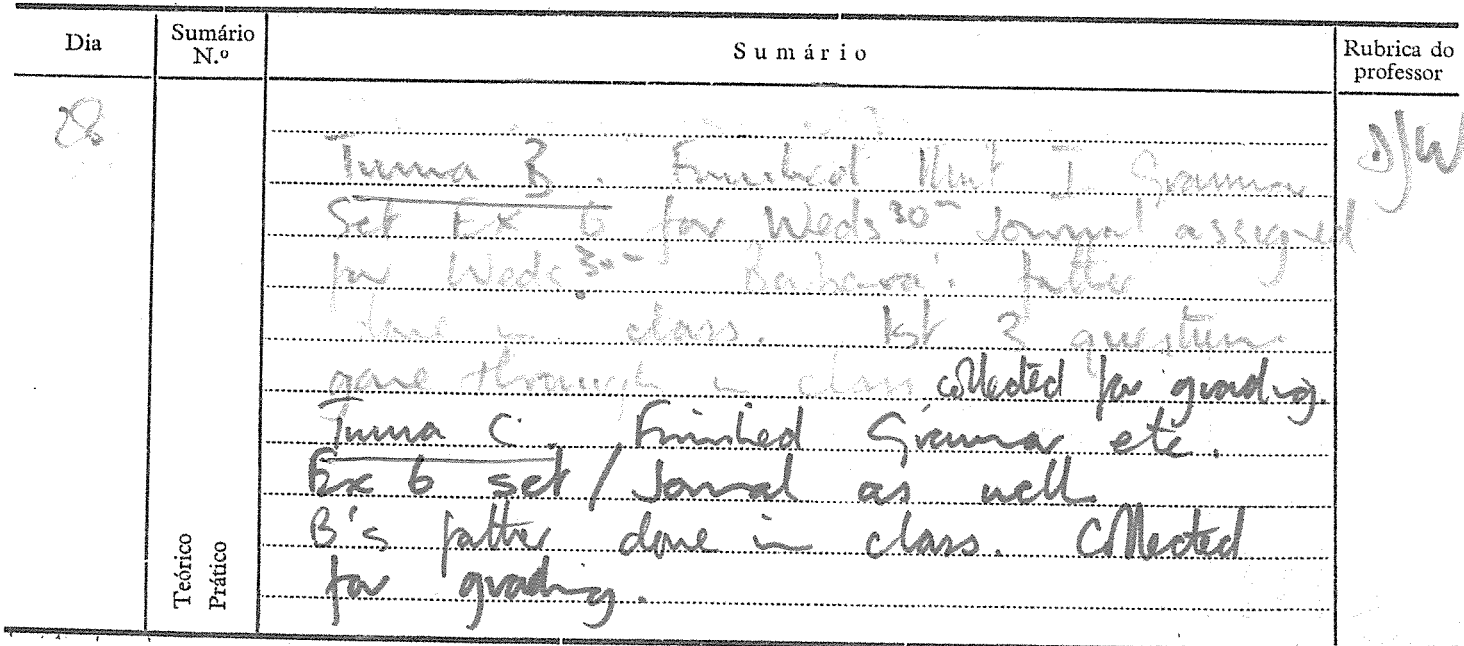 Dia
Sumário N.º
Sumário
Rubrica do professor
28
DJW
Turma B. Finished Unit I Grammar
Set Ex 6 for Weds 30th Journal assigned
for Weds 30th Barbara's father
done in class. 1st 3 questions
gone through in class collected for grading.
Turma C. Finished Grammar etc.
Ex 6 set / Journal as well
B's father done in class. Collected
for grading.
Teórico
Prático